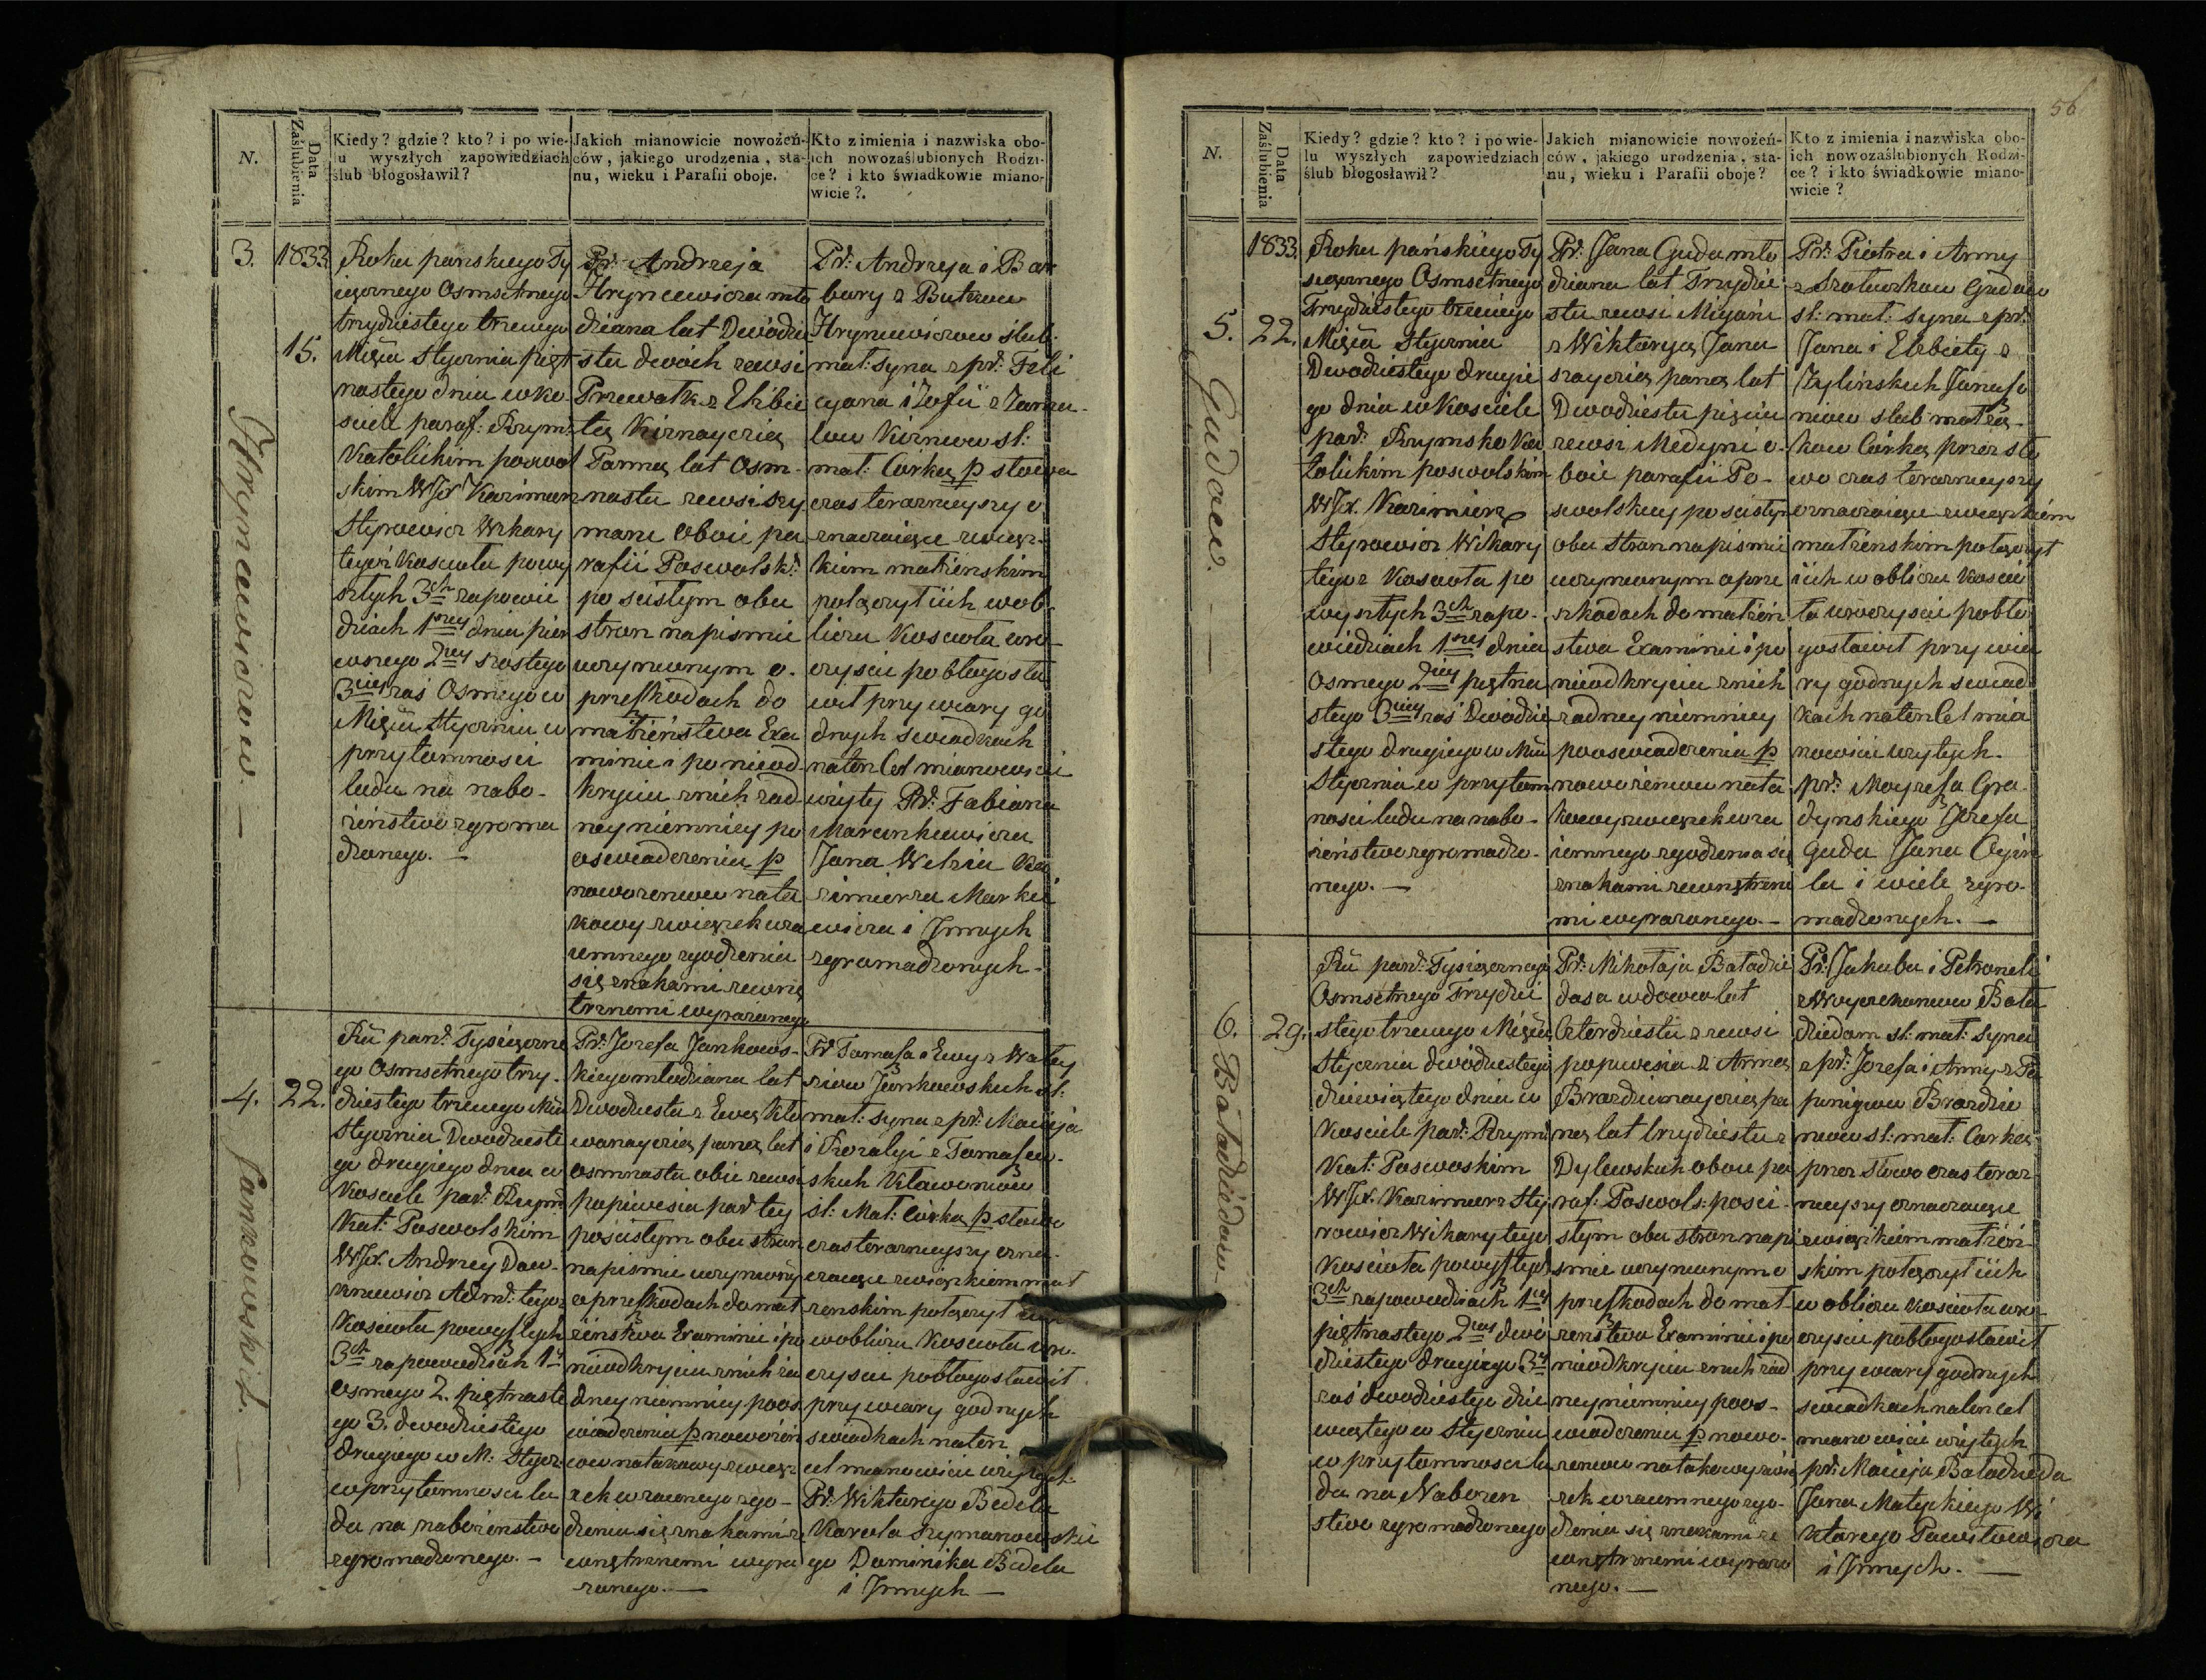 N.
Data
Zaślubienia
Kiedy? gdzie? kto? i po wie-
lu wyszłych zapowiedziach
ślub błogosławił?
Jakich mianowicie nowożeń-
ców, jakiego urodzenia, sta-
nu, wieku i Parafii oboje.
Kto z imienia i nazwiska obo-
ich nowozaślubionych Rodzi-
ce? i kto świadkowie miano-
wicie?.
3.
1833
15.
Hrynawiczow —
Roku pańskiego Ty
ięcznego Osmsetnego
trzydziestego trzeciego
Mięća Stycznia pięt
nastego dnia w ko
sciele paraf: Rzym:
Katolickim poswol
skim WJX Kazimierz
Styrowicz Wikary
tegoż Koscioła powy
szłych 3ch zapowie
dziach 1szey dnia pier
wszego 2giey szostego
3ciey zaś Osmego w
Mięću Styczniu w
przytomnosci
ludu na nabo-
żeństwo zgroma
dzonego. —
Pr: Andrzeja
Hryncewicza mło
dziana lat Dwódzie
stu dwóch zewsi
Przewałk z Elżbie
tą Kirnayczią
Panną lat Osm-
nastu zewsi szy
mani oboie pa
rafii Poswolsk:
po scisłym obu
stron napismie
uczynionym o.
przeszkodach do
małżeństwa Exa
minie i ponieod
kryciu znich żad
ney niemniey po
oswiadczeniu p
nowożencow nata
kowy związek wza
iemnego zgodzenia
się znakami zewnę
trznemi wyrażonego
Pr: Andrzeja i Bar
bary z Butkow
Hryncewiczow slub:
mat: syna z pr: Feli
cyana i Zofii z Zanie-
low Kirnow sl:
mat: Corką p słowa
czas teraznieyszy o
znaczaięce związ-
kiem małżenskim
połączył iich wob
liczu Kosciola uro-
czyscie pobłogosła
wił przy wiary go
dnych swiadkach
naten Cel mianowicie
wzięty Pr: Fabiana
Marcinkiewicza
Jana Welzia Ka
zimierza Markie
wicza i Innych
zgromadzonych-
4.
22.
Jankowskich. —
Ru pań: Tysięczne
go Osmsetnego trzy-
dziestego trzeciego Mca
Stycznia Dwodzieste
go drugiego dnia w
Kosciele par: Rzym
Kat: Poswolskim
WJX. Andrzey Daw-
kniewicz Adm: tegoz
Kosciola powyszłych
3ch zapowiedziach 1y
osmego 2. piętnaste
go 3. dwodziestego
drugiego w M: Stycz:
w przytomnosci lu
du na nabożenstwo
zgromadzonego. —
Pr: Jozefa Jankows-
kiego młodziana lat
Dwodziestu z Ewą Kło
wanayczią panną lat
osmnastu obie zewsi
popiwesia par tey
pościsłym obu stron
napismie uczyniony
o przeszkodach do mał
żeństwa Examinie i po
nieodkryciu znich ża
dney niemniey poos
wiadczeniu p nowożen
cow natakowy związ
zek wzaiemnego zgo-
dzenia się znakami z
ewnętrznemi wyra
żonego. —
Pr Tomasza i Ewy z Waley
ziow Jankowskich sl:
mat: syna z pr: Macieja
i Rozalyi z Tomaszew-
skich Kławoniow
sl: Mat: Corką p słowo
czas teraznieyszy ozna-
czaięce związkiem mał
zenskim połączył iich
wobliczu Kosciola uro-
czyscie pobłogosławił
przy wiary godnych
swiadkach naten
cel mianowicie wziętych:
Pr: Wiktorego Bedela
Karola Szymanowskie
go Dominika Bidela
i Innych —
56
N.
Data
Zaślubienia
Kiedy? gdzie? kto? i po wie-
lu wyszłych zapowiedziach
ślub błogosławił?
Jakich mianowicie nowożeń-
ców, jakiego urodzenia, sta-
nu, wieku i Parafii oboje?
Kto z imienia i nazwiska obo-
ich nowozaślubionych Rodzi-
ce? i kto świadkowie miano-
wicie?
1833.
5.
22.
Gudow. —
Roku pańskiego Ty
siecznego Osmsetnego
Trzydziestego trzeciego
Mięća Stycznia
Dwodziestego drugie
go dnia w Kosciele
par: Rzymsko Ka
tolickim poswolskim
WJX. Kazimierz
Styrowicz Wikary
tegoz Kosciola po
wyszłych 3ch zapo-
wiedziach 1szey dnia
osmego 2giey piętna
stego 3ciey zaś Dwódzie
stego drugiego w Mcu
Styczniu w przytom
nosci ludu na nabo-
żeństwo zgromadzo-
nego. —
Pr: Jana Guda mło
dziana lat Trzydzie
stu zewsi Migani
z Wiktoryą Jana
szayczią panną lat
Dwodziestu pięciu
zewsi Medyni o-
boie parafii Po-
swolskiey po scisłym
obu stron napismie
uczynionym oprze
szkodach do małżeń
stwa Examinie i po
nieodkryciu znich
zadney niemniey
pooswiadczeniu p
nowożencow nata
kowy związek wza
iemnego zgodzenia się
znakami zewnętrzne
mi wyrazonego. —
Pr: Piotra i Anny
z Szatuszkow Gudow
sl: mat: syna z pr:
Jana i Elżbiety z
Zylińskich Janaszo
niow slub małżą-
kow Córką przez sło
wo czas teraznieyszy
oznaczaięce związkiem
małżenskim połączył
iich w obliczu Koscio
ła uroczyscie pobło
gosławił przy wia
ry godnych swiad
kach naten Cel mia
nowicie wziętych.
pr: Moyzesza Gra-
dynskiego Jozefa
Guda Jana Ogin
la i wiele zgro-
madzonych. —
6.
29.
Batadziedow —
Ru pań: Tysięcznego
Osmsetnego trzydzie
stego trzeciego Mięća
Stycznia dwódziestego
dziewiątego dnia w
Kosciele par: Rzym
Kat: Poswoskim
WJX. Kazimierz Sty
rowicz Wikary tego
Kosciola powyszłych
3ch zapowiedziach 1ey
piętnastego 2giey dwó
dziestego drugiego 3y
zaś dwodziestego dzie
wiątego w Styczniu
w przytomnosci lu
du na Nabożen
stwo zgromadzonego
Pr: Mikołaja Batadzie
dasa wdowca lat
Czterdziestu z zewsi
popiwesia z Anną
Brazdzionayczią pa
ną lat trzydziestu z
Dylewskich oboie pa
raf: Poswols: posci-
słym obu stron napi
smie uczynionym o
przeszkodach do mał-
żeństwa Examinie i po
nieodkryciu znich żad
ney niemniey poos-
wiadczeniu p nowo-
żencow natakowy zwią
zek wzaiemnego zgo-
dzenia się znakami ze
wnętrznemi wyrażo
nego. —
Pr: Jakuba i Petroneli
z Woyczekaniow Bata
dziedow sl: mat: syna
z pr: Jozefa i Anny z Po
punigow Brazdzio
niow sl: mat: Corką
przez słowo czas teraz-
nieyszy oznaczaięce
związkiem małżeń-
skim połączył iich
w obliczu Kosciola uro-
czyscie pobłogosławił
przy wiary godnych
swiadkach naten cel
mianowicie wziętych
pr: Macieja Batadzieda
Jana Matyckiego Wi
ktorego Pawłowicza
i Innych. —